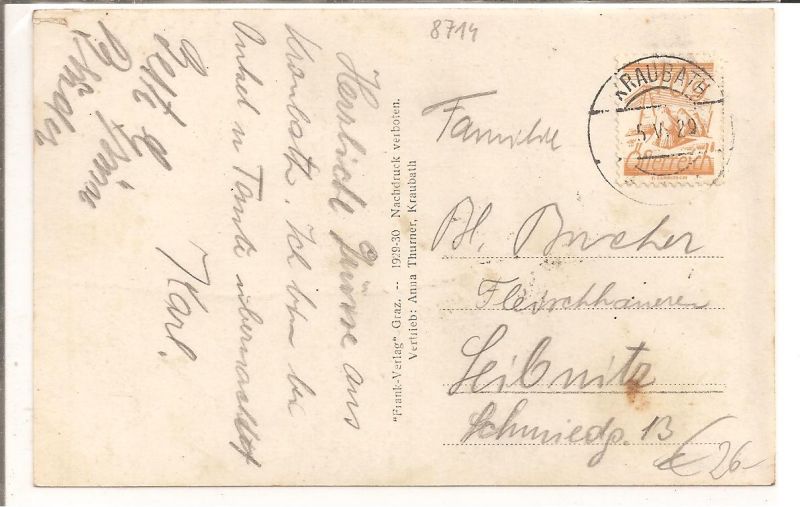 8714
Herzliche Grüsse aus
Kraubath. Ich bin bei
Onkel u Tante
Karl.
"Frank-Verlag" Graz. -- 1929-30 Nachdruck verboten.
Vertrieb: Anna Thurner, Kraubath
KRAUBATH
Familie
Bl. Bucher
Fleischhauerei
Leibnitz
Schmiedg. 13
€ 26-